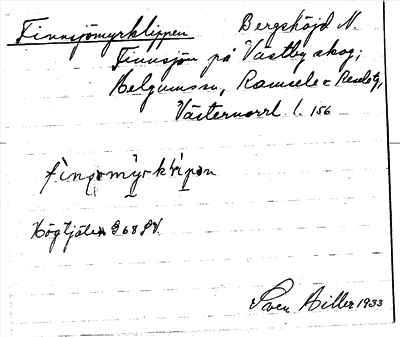 Finnsjömyrklippen Bergshöjd N.
Finnsjön på Västby skog;
Helgumssn, Ramsele o Resele tg,
Västernorrl. l. 156
fìnsomỳrkkl̀ipən
Högtjälen 968 SV.
Sven Hiller 1933